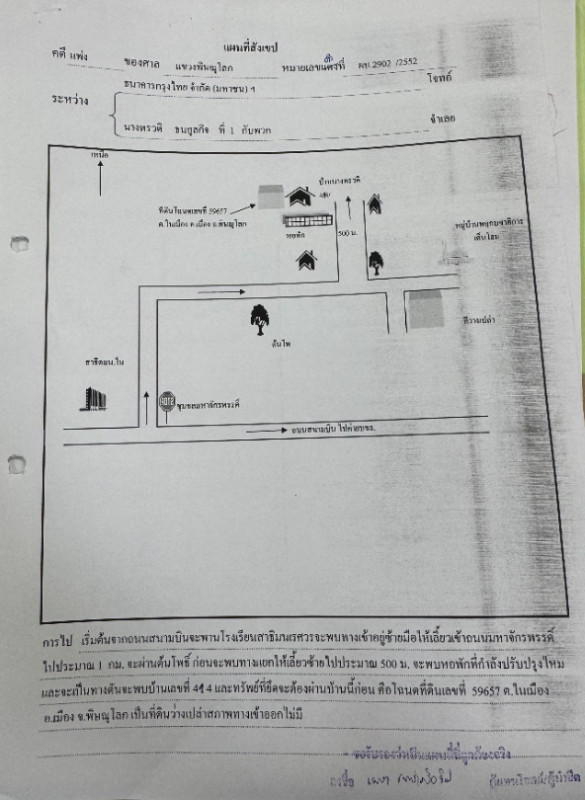 แผนที่สังเขป
คดี แพ่ง ของศาล แขวงพิษณุโลก หมายเลขแดงที่ ผบ.2902 /2552
ธนาคารกรุงไทย จำกัด (มหาชน) ฯ โจทก์
ระหว่าง
ที่ 1 กับพวก จำเลย
เหนือ
ที่ดินโฉนดเลขที่ 59657
ต.ในเมือง อ.เมือง จ.พิษณุโลก
หอพัก
500 ม.
ต้นโพ
สาธิตมน.ใน
STOP
ชุมชนมหาจักรพรรดิ์
ถนนสนามบิน
การไป เริ่มต้นจากถนนสนามบินจะผ่านโรงเรียนสาธิมนเรศวรจะพบทางเข้าอยู่ซ้ายมือให้เลี้ยวเข้าถนนมหาจักรพรรดิ์
ไปประมาณ 1 กม. จะผ่านต้นโพธิ์ ก่อนจะพบทางแยกให้เลี้ยวซ้ายไปประมาณ 500 ม. จะพบหอพักที่กำลังปรับปรุงใหม่
และจะเป็นทางตันจะพบบ้านเลขที่ และทรัพย์ที่ยึดจะต้องผ่านบ้านนี้ก่อน คือโฉนดที่ดินเลขที่ 59657 ต.ในเมือง
อ.เมือง จ.พิษณุโลก เป็นที่ดินว่างเปล่าสภาพทางเข้าออกไม่มี